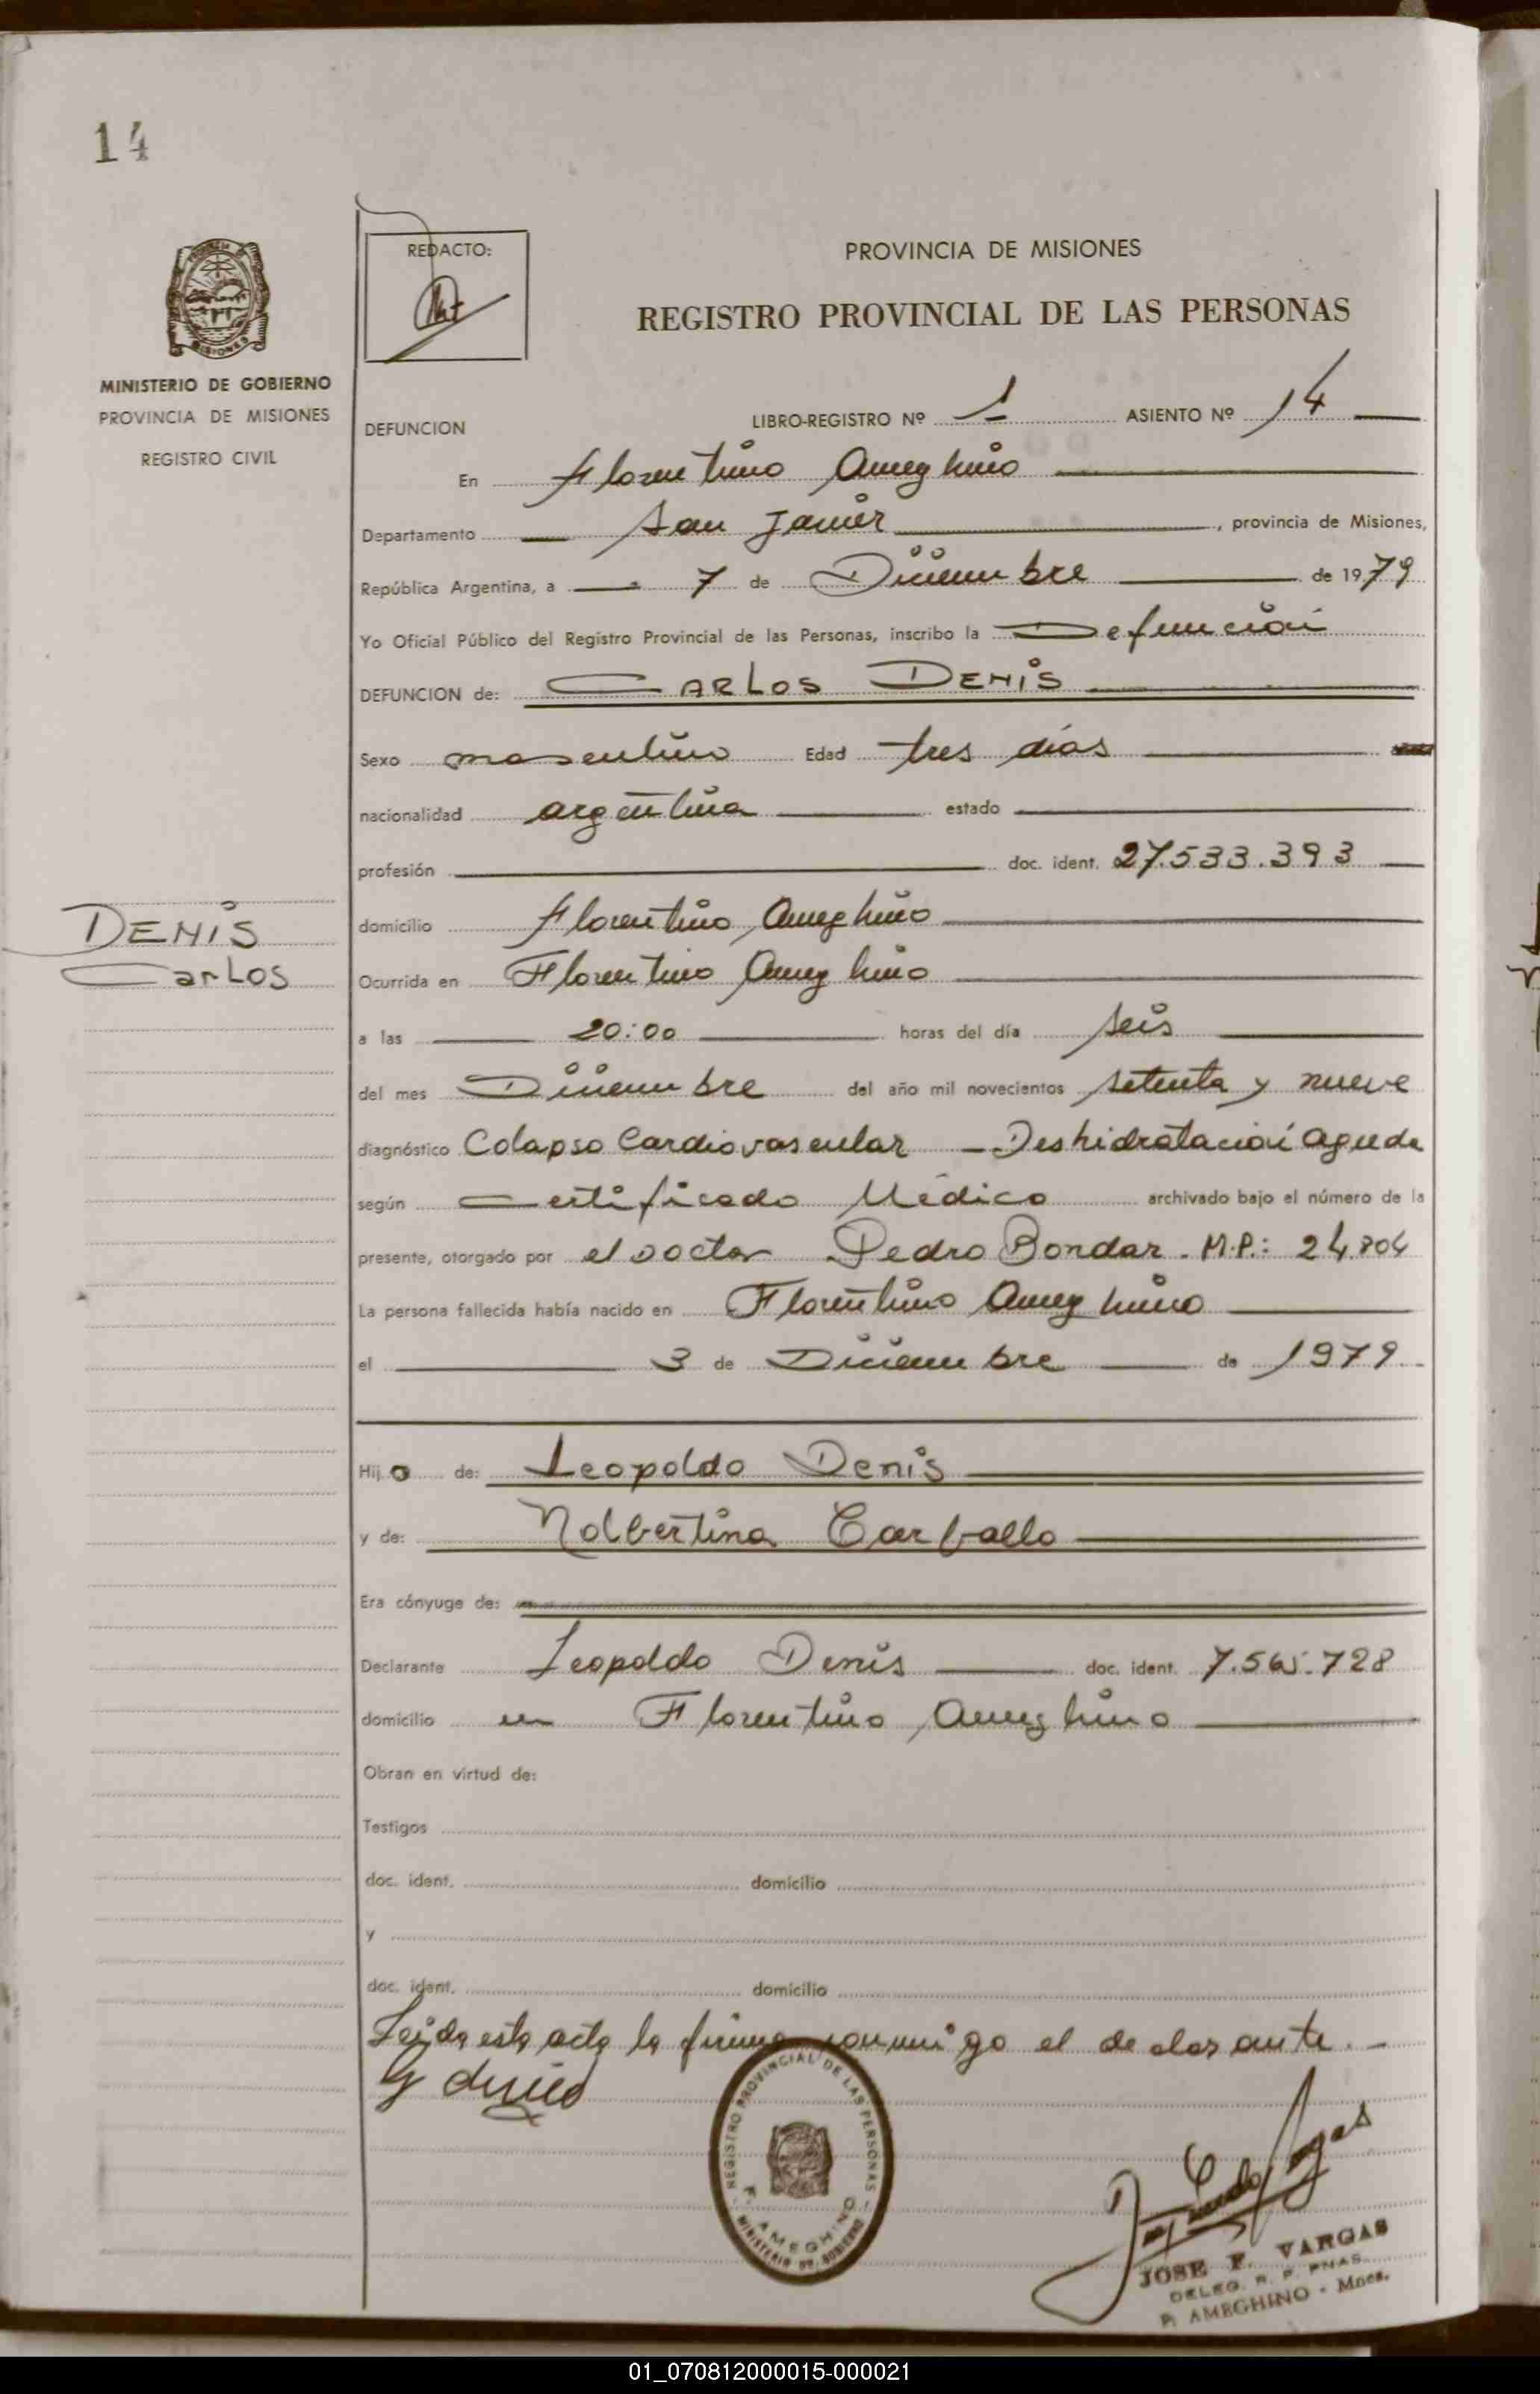 14
REDACTO:
PROVINCIA DE MISIONES
REGISTRO PROVINCIAL DE LAS PERSONAS
MINISTERIO DE GOBIERNO
PROVINCIA DE MISIONES
REGISTRO CIVIL
DEFUNCION LIBRO-REGISTRO Nº 1 ASIENTO Nº 14
En Florentino Ameghino
Departamento San Javier, provincia de Misiones,
República Argentina, a 7 de Diciembre de 1979
Yo Oficial Público del Registro Provincial de las Personas, inscribo la Defunción
DEFUNCION de: CARLOS DENIS
Sexo masculino Edad tres días
nacionalidad argentina estado
profesión doc. ident. 27.533.393
DENIS
Carlos
domicilio Florentino Ameghino
Ocurrida en Florentino Ameghino
a las 20:00 horas del día seis
del mes Diciembre del año mil novecientos setenta y nueve
diagnóstico Colapso Cardiovascular - Deshidratación aguda
según Certificado Médico archivado bajo el número de la
presente, otorgado por el Doctor Pedro Bondar. M.P.:
La persona fallecida había nacido en Florentino Ameghino
el 3 de Diciembre de 1979
Hijo de: Leopoldo Denis
y de: Nolbertina Carballo
Era cónyuge de:
Declarante Leopoldo Denis doc. ident. 7.565.728
domicilio en Florentino Ameghino
Obran en virtud de:
Testigos
doc. ident. domicilio
y
doc. ident. domicilio
Leida esta acta la firma conmigo el declarante. -
REGISTRO PROVINCIAL DE LAS PERSONAS
F. AMEGHINO
MINISTERIO DE GOBIERNO
JOSE F. VARGAS
DELEG. R. P. PNAS.
F. AMEGHINO - Mnes.
01_070812000015-000021